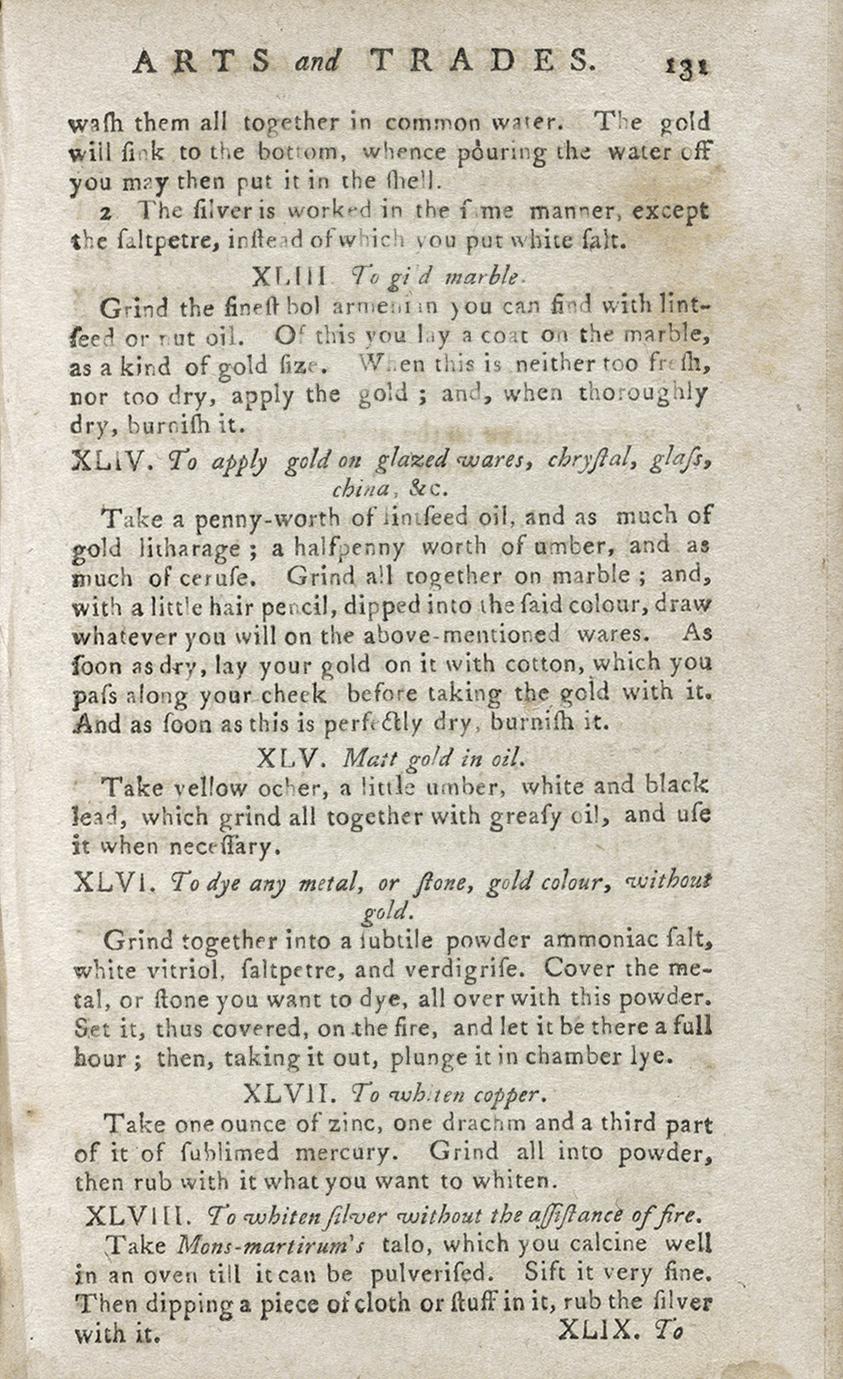 ARTS and TRADES. 131
waſh them all together in common water. The gold
will ſink to the bottom, whence pouring the water off
you may then put it in the ſhell.
2 The ſilver is worked in the ſame manner, except
the ſaltpetre, inſtead of which you put white ſalt.
XLIII. To gild marble.
Grind the fineſt bol armenian you can find with lint-
ſeed or nut oil. Of this you lay a coat on the marble,
as a kind of gold ſize. When this is neither too freſh,
nor too dry, apply the gold ; and, when thoroughly
dry, burniſh it.
XLIV. To apply gold on glazed wares, chryſtal, glaſs,
china, &c.
Take a penny-worth of lintſeed oil, and as much of
gold litharage ; a halfpenny worth of umber, and as
much of ceruſe. Grind all together on marble ; and,
with a little hair pencil, dipped into the ſaid colour, draw
whatever you will on the above-mentioned wares. As
ſoon as dry, lay your gold on it with cotton, which you
paſs along your cheek before taking the gold with it.
And as ſoon as this is perfectly dry, burniſh it.
XLV. Matt gold in oil.
Take yellow ocher, a little umber, white and black
lead, which grind all together with greaſy oil, and uſe
it when neceſſary.
XLVI. To dye any metal, or ſtone, gold colour, without
gold.
Grind together into a ſubtile powder ammoniac ſalt,
white vitriol, ſaltpetre, and verdigriſe. Cover the me-
tal, or ſtone you want to dye, all over with this powder.
Set it, thus covered, on the fire, and let it be there a full
hour ; then, taking it out, plunge it in chamber lye.
XLVII. To whiten copper.
Take one ounce of zinc, one drachm and a third part
of it of ſublimed mercury. Grind all into powder,
then rub with it what you want to whiten.
XLVIII. To whiten ſilver without the aſſiſtance of fire.
Take Mons-martirum's talo, which you calcine well
in an oven till it can be pulveriſed. Sift it very fine.
Then dipping a piece of cloth or ſtuff in it, rub the ſilver
with it. XLIX. To